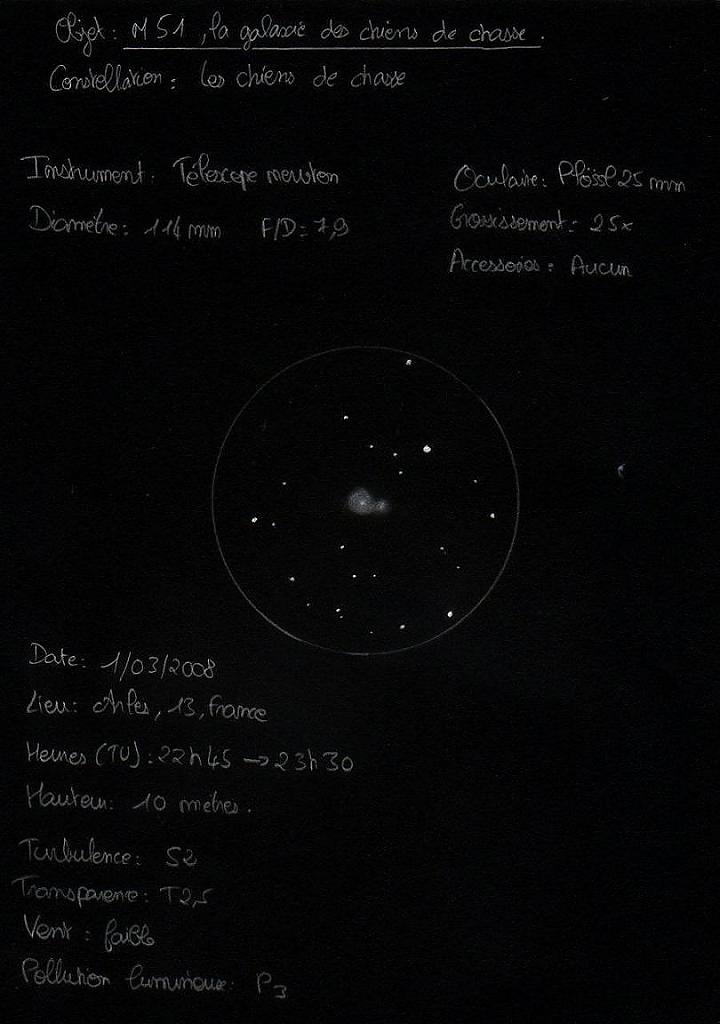 Objet : M 51, la galaxie des chiens de chasse.
Constellation : Les chiens de chasse
Instrument : Télescope newton
Diamètre : 114 mm F/D = 7,9
Oculaire : Plössl 25 mm
Grossissement : 25x
Accessoires : Aucun
Date : 1/03/2008
Lieu : Arles, 13, France
Heures (TU) : 22h45 → 23h30
Hauteur : 10 mètres.
Turbulence : S2
Transparence : T2,5
Vent : faible
Pollution lumineuse : P3